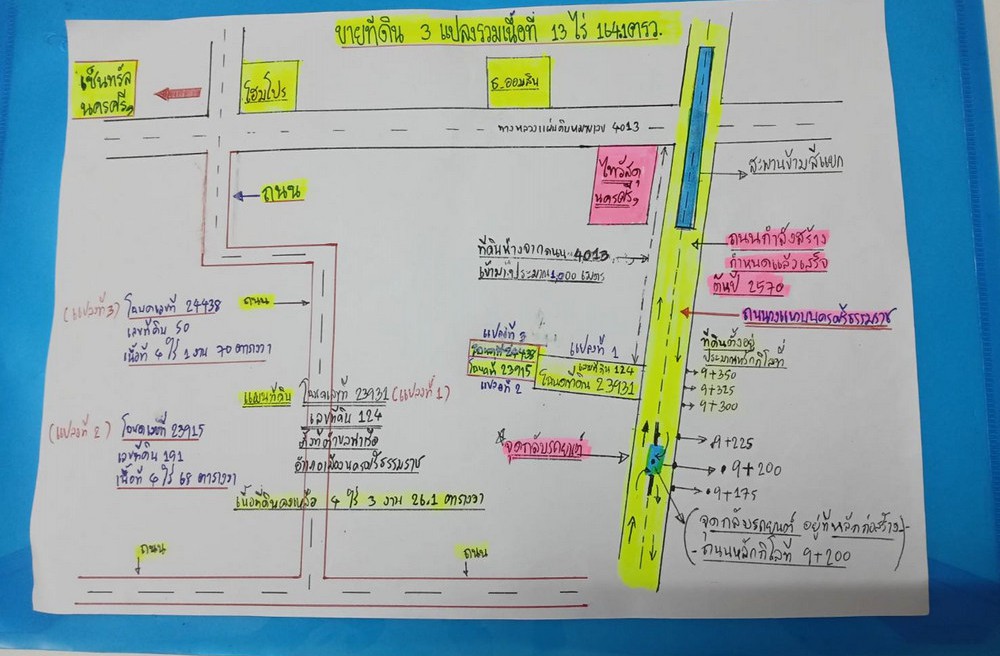 ขายที่ดิน 3 แปลงรวมเนื้อที่ 13 ไร่ 164.1 ตรว.
เซ็นทรัล
นครศรีฯ
โฮมโปร
ธ.ออมสิน
ทางหลวงแผ่นดินหมายเลข 4013
สะพานข้ามสี่แยก
ไทวัสดุ
นครศรีฯ
ถนน
ที่ดินห่างจากถนน 4013
เข้ามาประมาณ 1,000 เมตร
ถนนกำลังสร้าง
กำหนดแล้วเสร็จ
ต้นปี 2570
ถนนวงแหวนนครศรีธรรมราช
(แปลงที่ 3) โฉนดเลขที่ 24438
เลขที่ดิน 50
เนื้อที่ 4 ไร่ 1 งาน 70 ตารางวา
ถนน
แปลงที่ 3
โฉนดที่ 24438
โฉนดที่ 23915
แปลงที่ 2
แปลงที่ 1
เลขที่ดิน 124
โฉนดที่ดิน 23931
ที่ดินตั้งอยู่
ประมาณหลักกิโลที่
9+350
9+325
9+300
9+225
9+200
9+175
แผนที่ดิน
โฉนดเลขที่ 23931 (แปลงที่ 1)
เลขที่ดิน 124
ตั้งที่ตำบลท่าเรือ
อำเภอเมืองนครศรีธรรมราช
เนื้อที่ดินคงเหลือ 4 ไร่ 3 งาน 26.1 ตารางวา
(แปลงที่ 2) โฉนดเลขที่ 23915
เลขที่ดิน 191
เนื้อที่ 4 ไร่ 68 ตารางวา
จุดกลับรถยนต์
(จุดกลับรถยนต์ อยู่ที่หลักก่อสร้าง-
-ถนนหลักกิโลที่ 9+200)
ถนน
ถนน